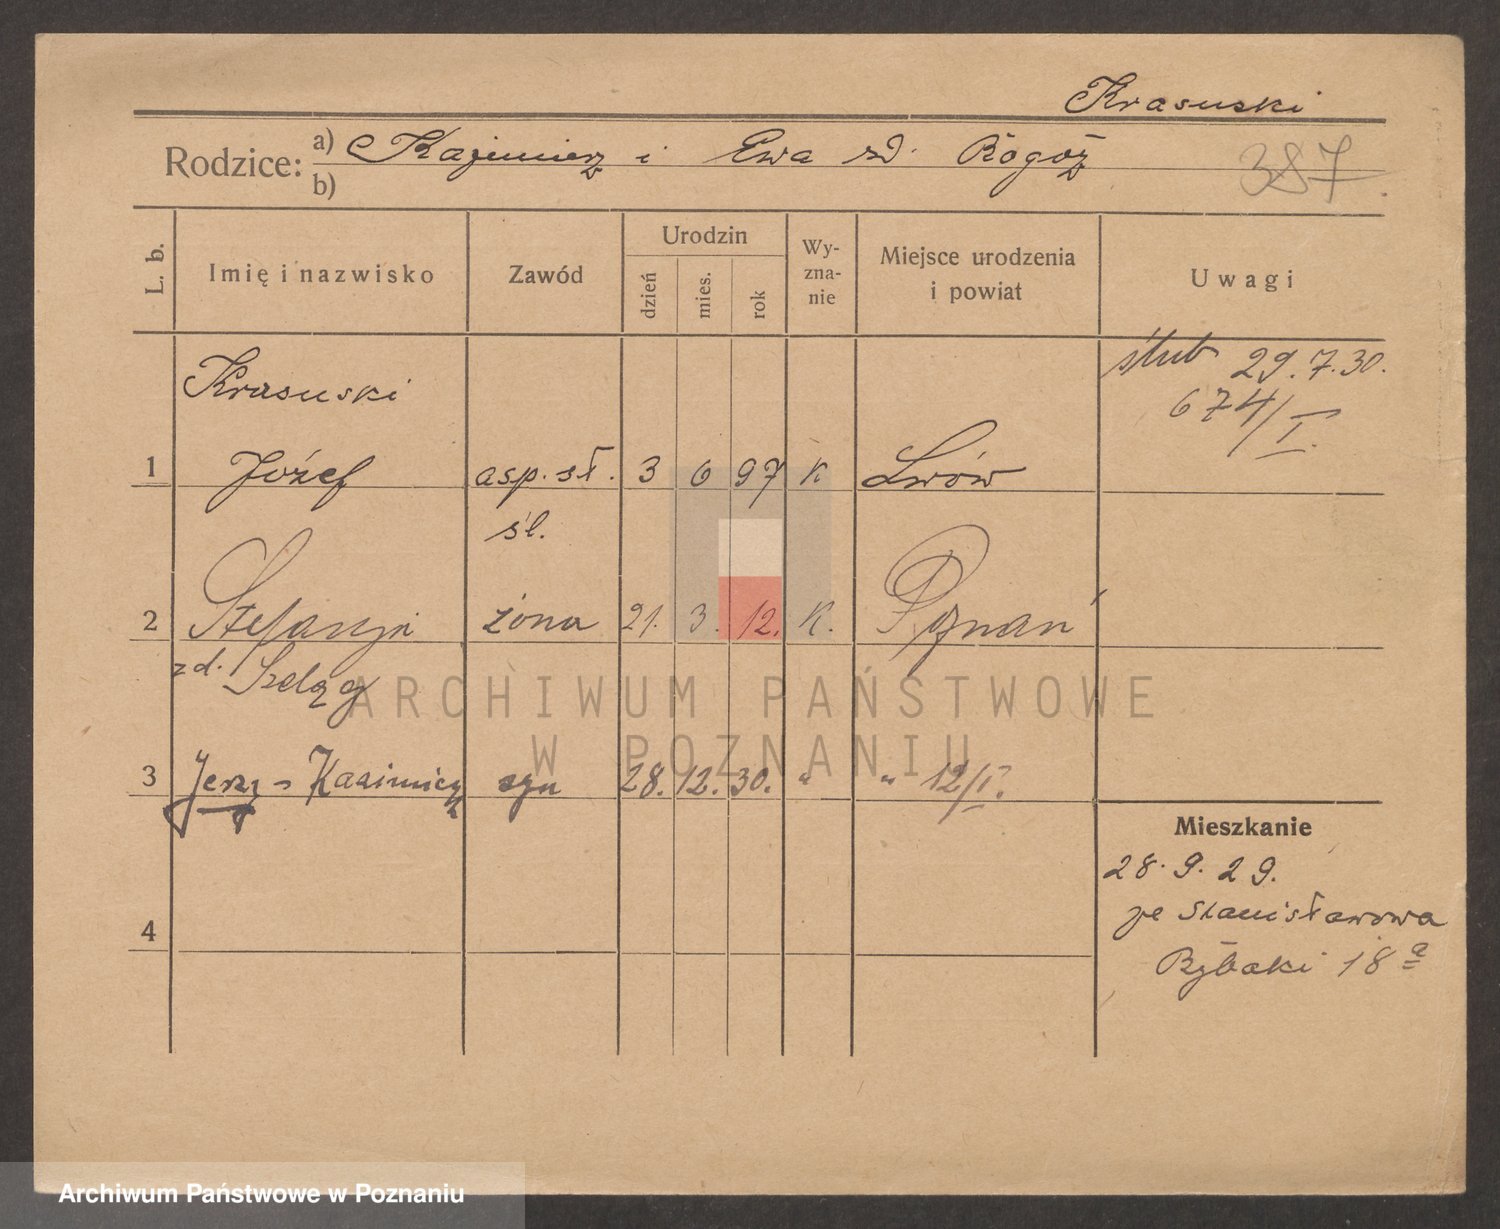 Krasuski
Rodzice: a) Kazimierz i Ewa zd. Rogóż
b)
387
L. b. Imię i nazwisko Zawód Urodzin dzień mies. rok Wy-zna-nie Miejsce urodzenia i powiat Uwagi
ślub 29.7.30.
674/I.
Krasuski
1 Józef asp. sł. 3 6 97 K Lwów
śl.
2 Stefanja żona 21. 3. 12. K. Poznań
zd. Szeląg
ARCHIWUM PAŃSTWOWE
W POZNANIU
3 Jerzy-Kazimierz syn 28. 12. 30. " " 12/I.
Mieszkanie
28.9.29.
ze Stanisławowa
4
Rybaki 18a
Archiwum Państwowe w Poznaniu